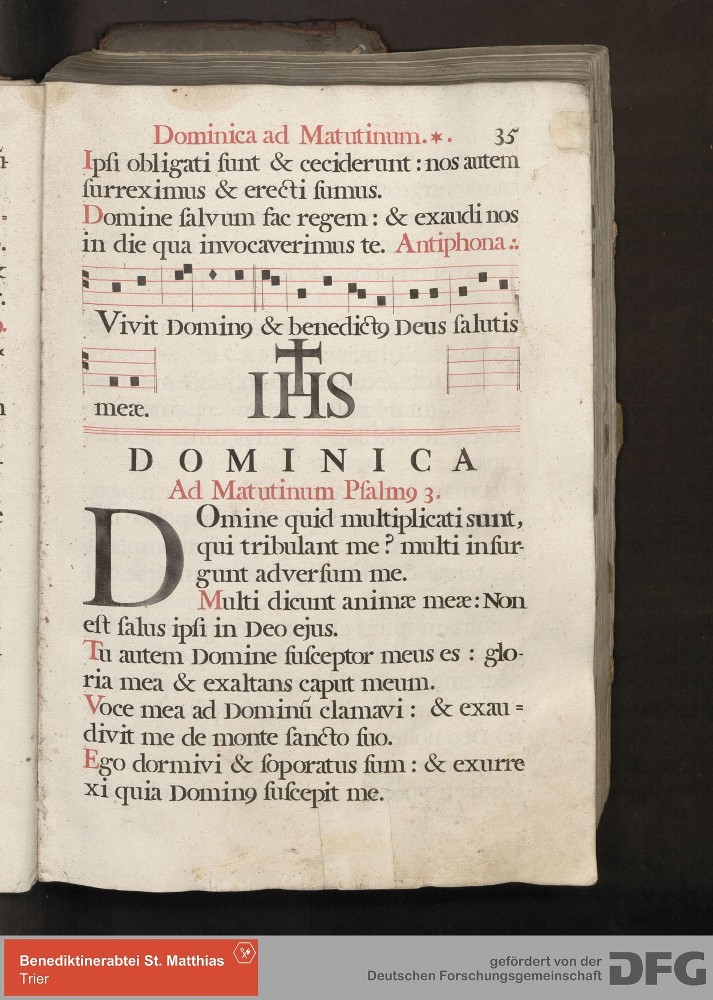 Dominica ad Matutinum. * . 35
Ipſi obligati ſunt & ceciderunt : nos autem
ſurreximus & erecti ſumus.
Domine ſalvum fac regem : & exaudi nos
in die qua invocaverimus te. Antiphona ∴
Vivit Dominꝰ & benedictꝰ Deus ſalutis
meæ.
IHS
DOMINICA
Ad Matutinum Pſalmꝰ 3.
DOmine quid multiplicati sunt,
qui tribulant me? multi inſur-
gunt adverſum me.
Multi dicunt animæ meæ: Non
eſt ſalus ipſi in Deo ejus.
Tu autem Domine ſuſceptor meus es : glo-
ria mea & exaltans caput meum.
Voce mea ad Dominū clamavi : & exau=
divit me de monte ſancto ſuo.
Ego dormivi & ſoporatus ſum : & exurre
xi quia Dominꝰ ſuſcepit me.
Benediktinerabtei St. Matthias
Trier
gefördert von der
Deutschen Forschungsgemeinschaft
DFG